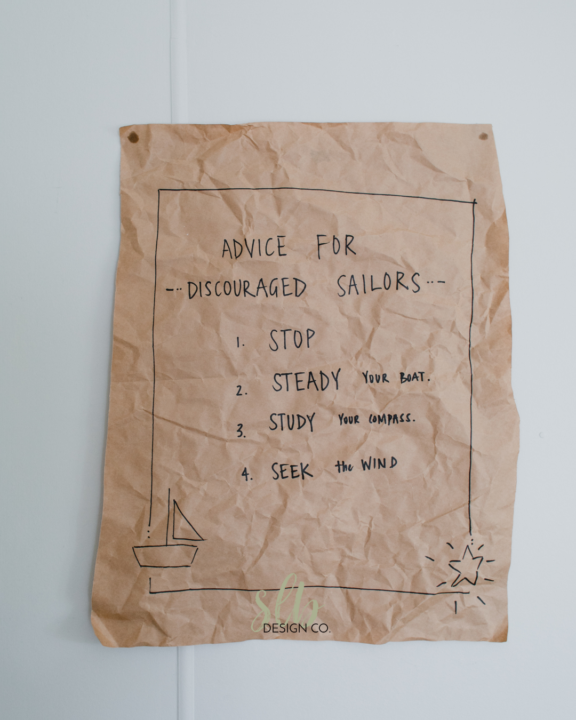 ADVICE FOR
--·DISCOURAGED SAILORS··--
1. STOP
2. STEADY YOUR BOAT.
3. STUDY YOUR COMPASS.
4. SEEK the WIND
DESIGN CO.